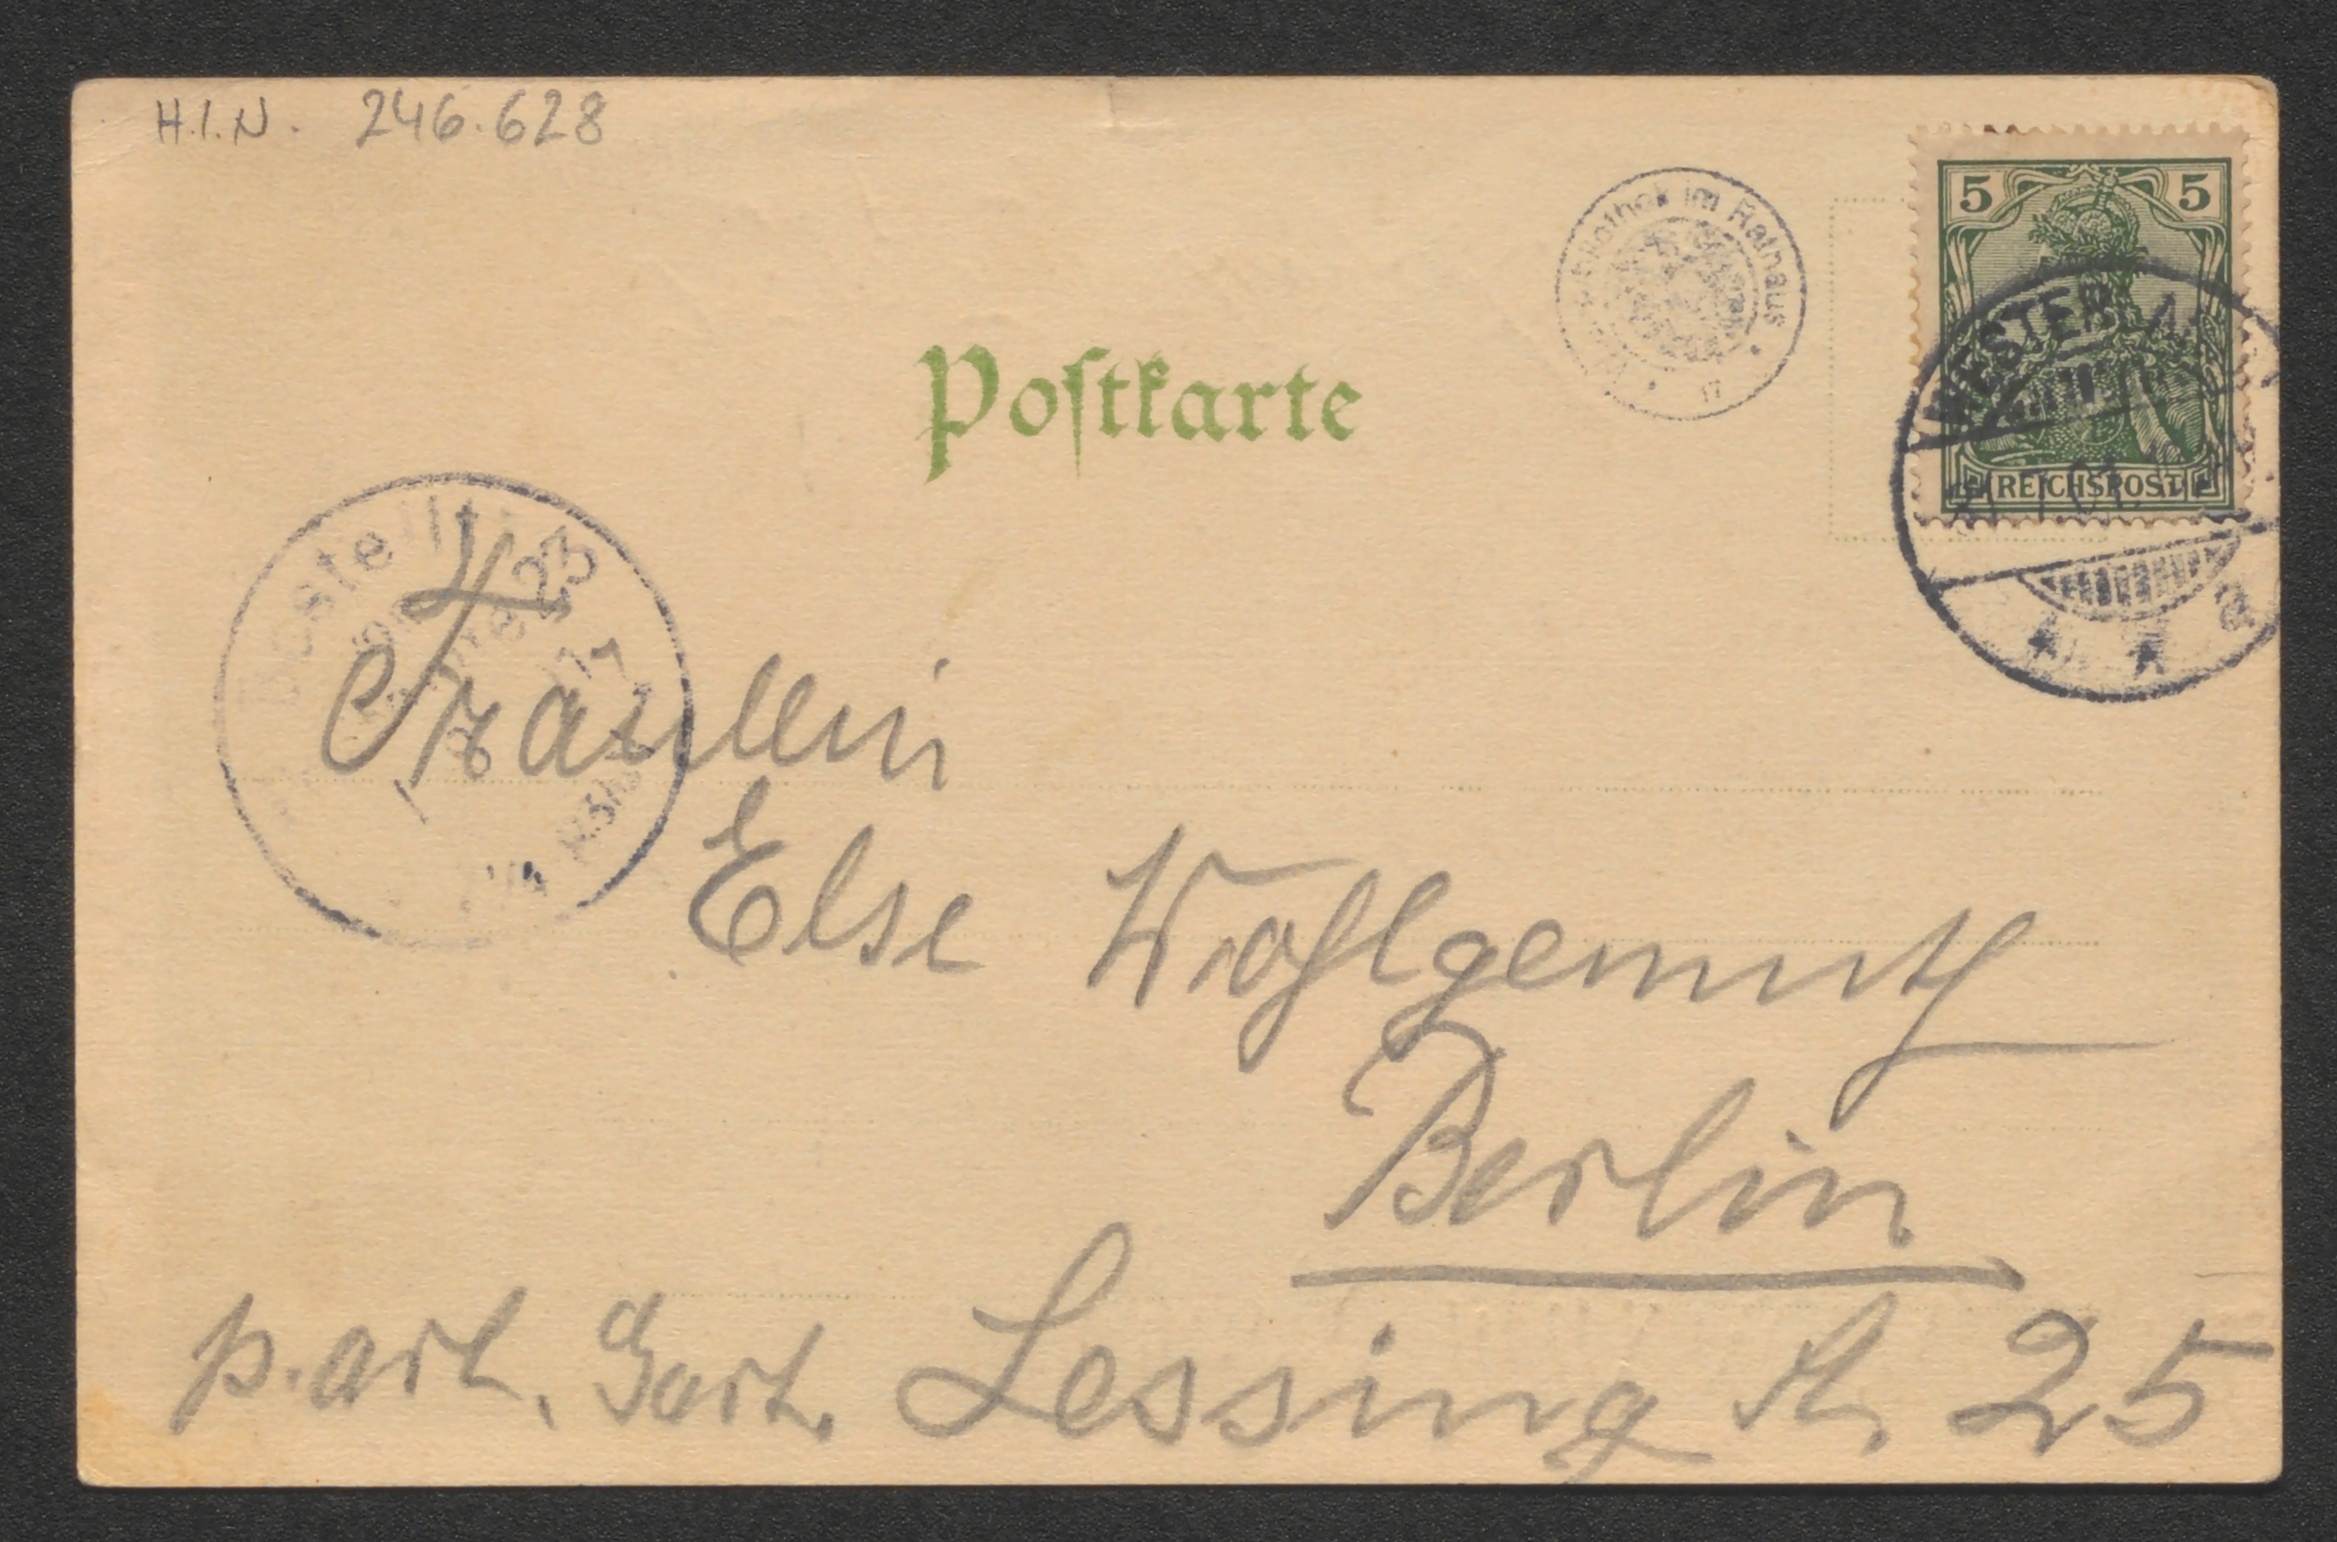 H.I.N. 246.628
bibliothek im Rathaus
5 5
WESTERLA
REICHSPOST
7.01.
a
Postkarte
Bestellt
23
Fräulein
Else Wohlgemuth
Berlin
part. Gart. Lessing str. 25